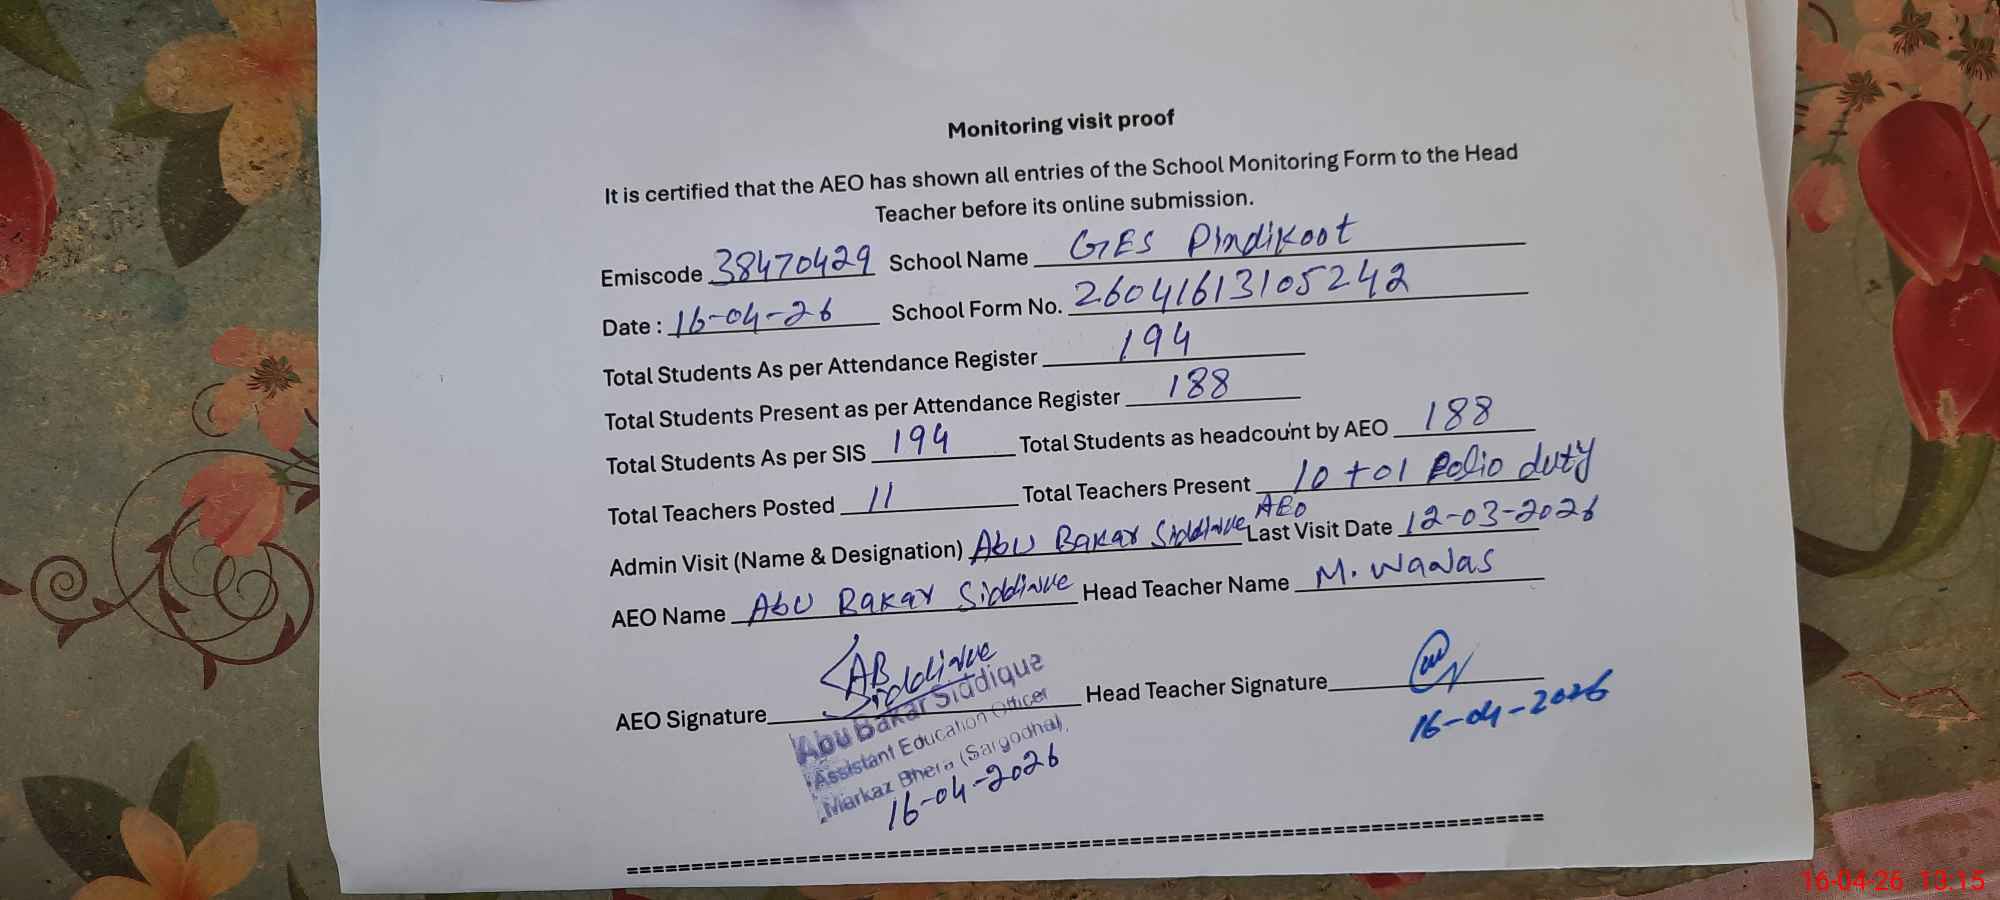 Monitoring visit proof
It is certified that the AEO has shown all entries of the School Monitoring Form to the Head
Teacher before its online submission.
Emiscode 38470429 School Name GES Pindikoot
Date : 16-04-26 School Form No. 26041613105242
Total Students As per Attendance Register 194
Total Students Present as per Attendance Register 188
Total Students As per SIS 194 Total Students as headcount by AEO 188
Total Teachers Posted 11 Total Teachers Present 10 + 01 Polio duty
Admin Visit (Name & Designation) Abu Bakar Siddique AEO Last Visit Date 12-03-2026
AEO Name Abu Bakar Siddique Head Teacher Name M.
AEO Signature AB Siddique Head Teacher Signature
Abu Bakar Siddique
Assistant Education Officer
Markaz Bhera (Sargodha)
16-04-2026
16-04-2026
16-04-26 13:15